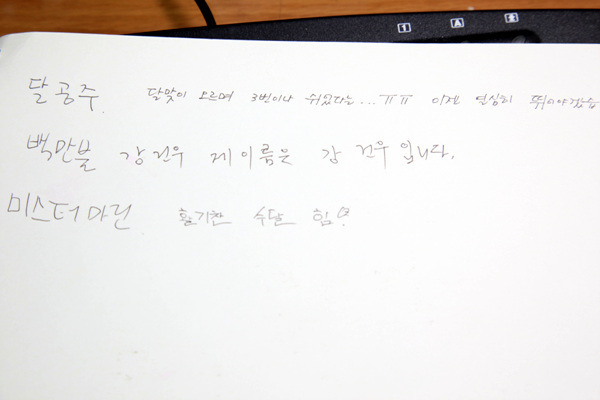 1 A
달공주. 달맞이 오르며 3번이나 쉬었다는...ㅠㅠ 이제 열심히 뛰어야겠습
백만불 강건우 제 이름은 강 건우 입니다.
미스터마린 활기찬 수달 힘!